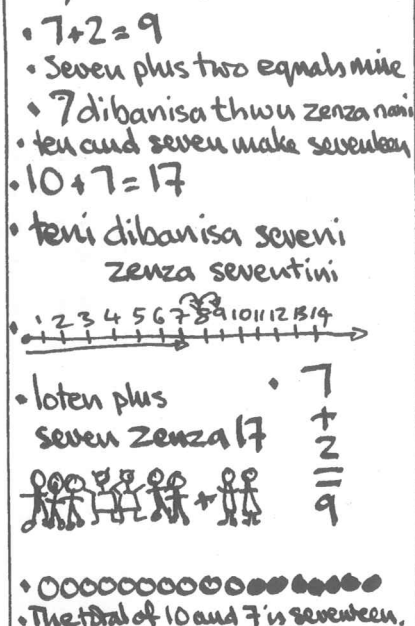 • 7+2=9
• Seven plus two equals nine
• 7 dibanisa thwu zenza nani
• ten and seven make seventeen
• 10+7=17
• teni dibanisa seveni
zenza seventini
• 1 2 3 4 5 6 7 8 9 10 11 12 13 14
• loten plus
seven zenza 17
• 7
+
2
=
9
+
• The total of 10 and 7 is seventeen.